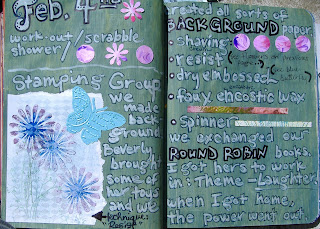 Feb. 4th
work-out/scrabble
shower/
Stamping Group
we
made
back-
ground
Beverly
brought
some of
her toys
and we
technique:
"Resist"
created all sorts of
BACKGROUND paper.
shaving
resist
dry embossed
faux encostic wax
Spinner
we exchanged our
ROUND ROBIN books.
I got hers to work
in: Theme - Laughter
when I got home,
the power went out.